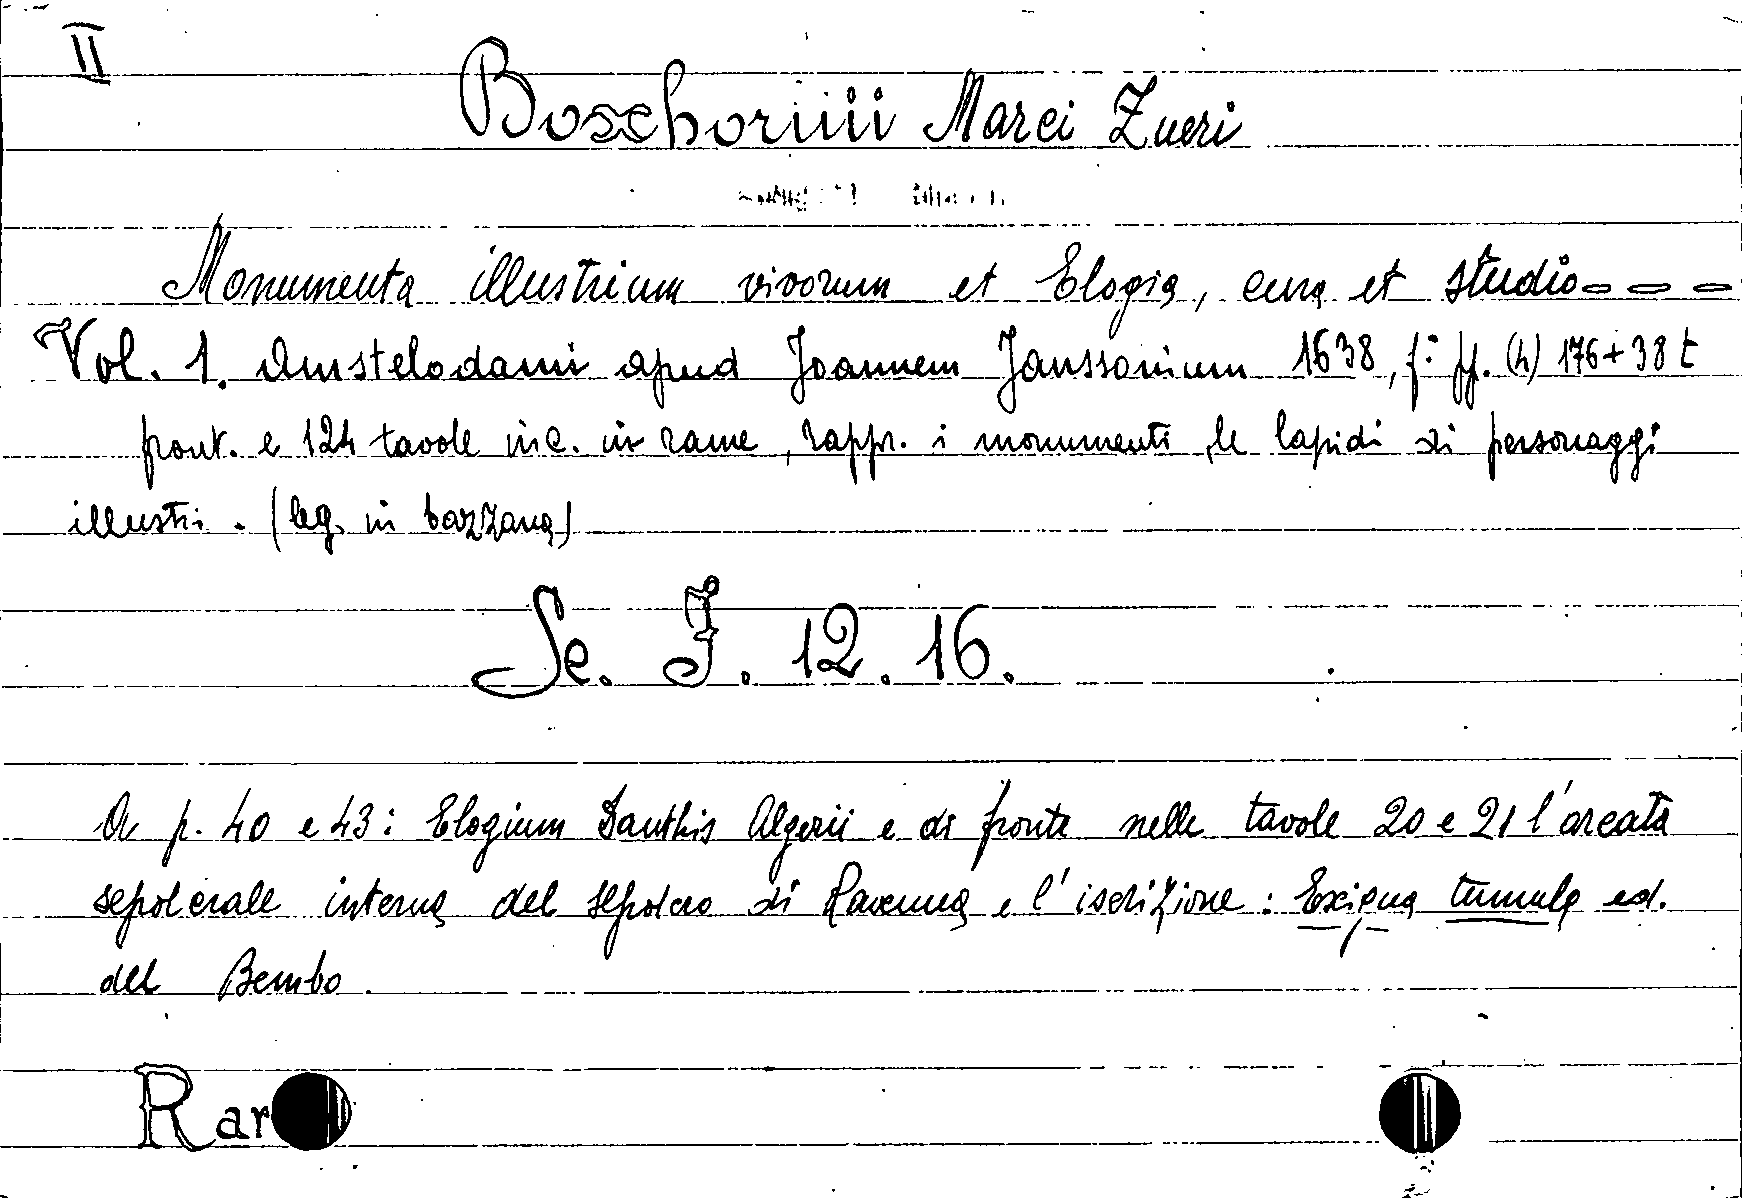 II
Boxhorniii Marci Zueri
Monumenta illustrium virorum et Elogia, cura et studio - - -
Vol. 1. Amstelodami apud Joannem Janssonium 1638, f: pp. (4) 176+38 t
front. e 124 tavole inc. in rame, rappr. i monumenti, le lapidi di personaggi
illustri. (leg. in bazzana)
Se. J. 12. 16.
A p. 40 e 43: Elogium Danthis Algerii e di fronte nelle tavole 20 e 21 l'arcata
sepolcrale interna del sepolcro di Ravenna e l'iscrizione: Exigua tumula ed.
del Bembo.
Rar